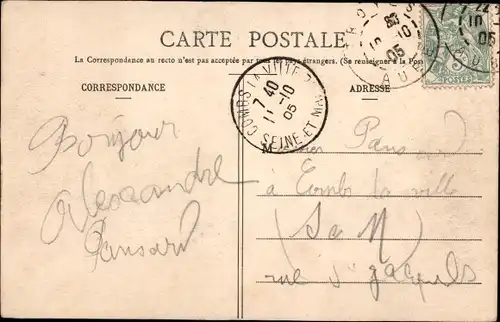 CARTE POSTALE
La Correspondance au recto n'est pas acceptée par tous les pays étrangers. (Se renseigner à la Pos
CORRESPONDANCE
ADRESSE
COMBS LA VILLE
7 40
11 -10
05
SEINE-ET-MA
10
05
AUBE
22
10
05
Bonjour
Alexandre
Pansard
Pansard
à Combs la ville
(S a M)
rue St Jacques